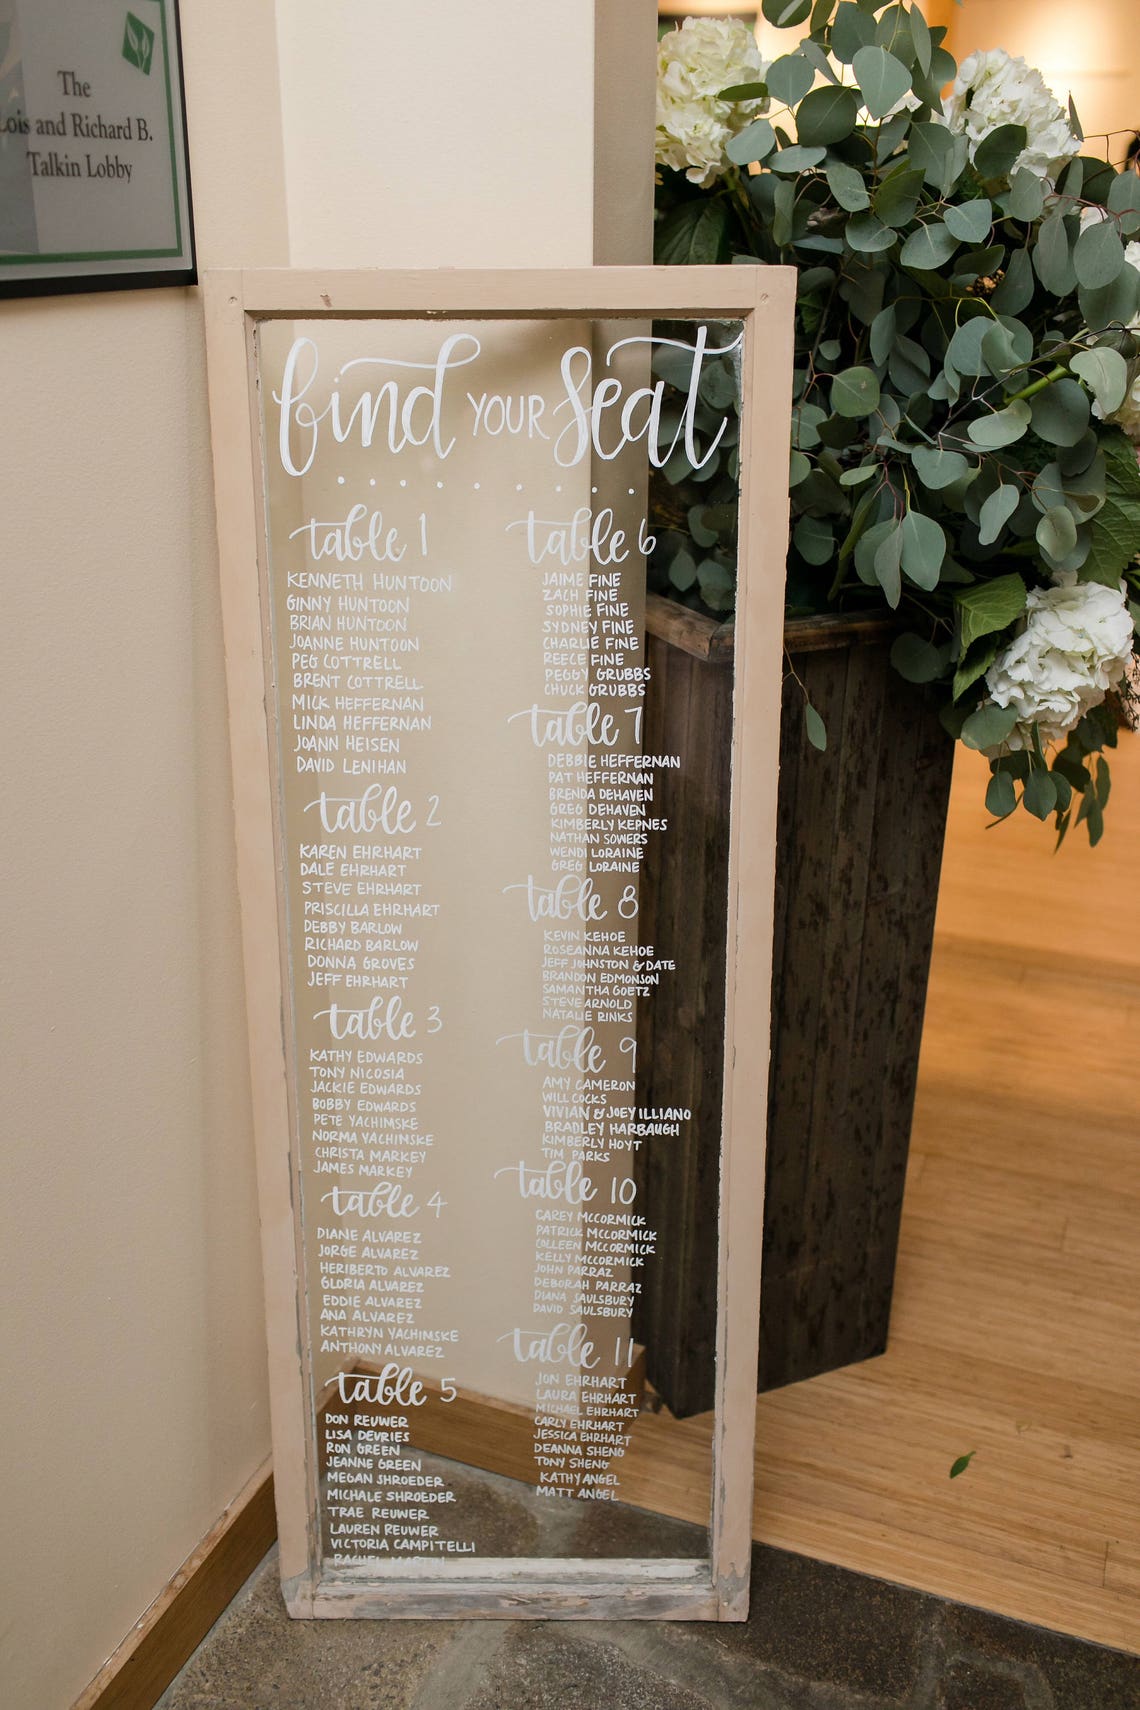 The
Lois and Richard B.
Talkin Lobby
find YOUR seat
table 1
KENNETH HUNTOON
GINNY HUNTOON
BRIAN HUNTOON
JOANNE HUNTOON
PEG COTTRELL
BRENT COTTRELL
MICK HEFFERNAN
LINDA HEFFERNAN
JOANN HEISEN
DAVID LENIHAN
table 2
KAREN EHRHART
DALE EHRHART
STEVE EHRHART
PRISCILLA EHRHART
DEBBY BARLOW
RICHARD BARLOW
DONNA GROVES
JEFF EHRHART
table 3
KATHY EDWARDS
TONY NICOSIA
JACKIE EDWARDS
BOBBY EDWARDS
PETE YACHIMSKE
NORMA YACHIMSKE
CHRISTA MARKEY
JAMES MARKEY
table 4
DIANE ALVAREZ
JORGE ALVAREZ
HERIBERTO ALVAREZ
GLORIA ALVAREZ
EDDIE ALVAREZ
ANA ALVAREZ
KATHRYN YACHIMSKE
ANTHONY ALVAREZ
table 5
DON REUWER
LISA DEVRIES
RON GREEN
JEANNE GREEN
MEGAN SHROEDER
MICHALE SHROEDER
TRAE REUWER
LAUREN REUWER
VICTORIA CAMPITELLI
RACHEL MARTIN
table 6
JAIME FINE
ZACH FINE
SOPHIE FINE
SYDNEY FINE
CHARLIE FINE
REECE FINE
PEGGY GRUBBS
CHUCK GRUBBS
table 7
DEBBIE HEFFERNAN
PAT HEFFERNAN
BRENDA DEHAVEN
GREG DEHAVEN
KIMBERLY KEPNES
NATHAN SOWERS
WENDI LORAINE
GREG LORAINE
table 8
KEVIN KEHOE
ROSEANNA KEHOE
JEFF JOHNSTON & DATE
BRANDON EDMONSON
SAMANTHA GOETZ
STEVE ARNOLD
NATALIE RINKS
table 9
AMY CAMERON
WILL COCKS
VIVIAN & JOEY ILLIANO
BRADLEY HARBAUGH
KIMBERLY HOYT
TIM PARKS
table 10
CAREY MCCORMICK
PATRICK MCCORMICK
COLLEEN MCCORMICK
KELLY MCCORMICK
JOHN PARRAZ
DEBORAH PARRAZ
DIANA SAULSBURY
DAVID SAULSBURY
table 11
JON EHRHART
LAURA EHRHART
MICHAEL EHRHART
CARLY EHRHART
JESSICA EHRHART
DEANNA SHENG
TONY SHENG
KATHY ANGEL
MATT ANGEL